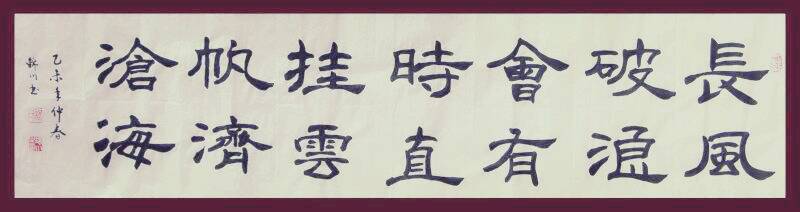 長風
破浪
會有
時直
挂雲
帆濟
滄海
乙未年仲春